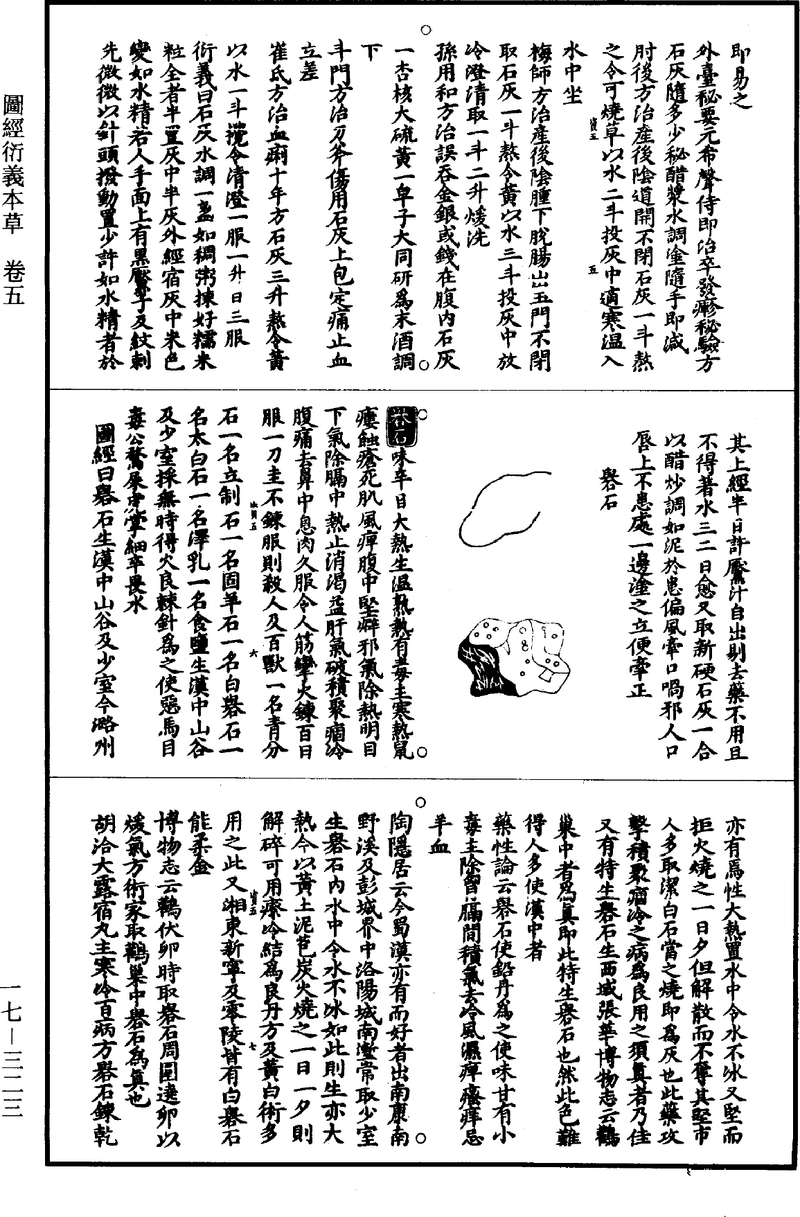 圖經衍義本草　卷五
一七—三二三
即易之
外臺秘要元希聲侍郎治卒發瘮秘驗方
石灰隨多少秘醋漿水調塗隨手即減
肘後方治產後陰道開不閉石灰一斗熬
之令可燒草以水二斗投灰中適寒温入
水中坐
梅師方治產後陰腫下脫腸出玉門不閉
取石灰一斗熬令黃以水三斗投灰中放
冷澄清取一斗二升煖洗
孫用和方治誤吞金銀或錢在腹內石灰
一杏核大硫黃一皁子大同研爲末酒調
下
斗門方治刀斧傷用石灰上包定痛止血
立差
崔氏方治血痢十年方石灰三升熬令黃
以水一斗攪令清澄一服一升日三服
衍義曰石灰水調一盞如稠粥揀好糯米
粒全者半置灰中半灰外經宿灰中米色
變如水精若人手面上有黑黶子及紋刺
先微微以針頭撥動置少許如水精者於
其上經半日許黶汁自出剔去藥不用且
不得著水三二日愈又取新硬石灰一合
以醋炒調如泥於患偏風牽口喎邪人口
唇上不患處一邊塗之立便牽正
礜石
礜石味辛甘大熱生温熟熱有毒主寒熱鼠
瘻蝕瘡死肌風痺腹中堅癖邪氣除熱明目
下氣除膈中熱止消渴益肝氣破積聚痼冷
腹痛去鼻中息肉久服令人筋攣火鍊百日
服一刀圭不鍊服則殺人及百獸一名青分
石一名立制石一名固羊石一名白礜石一
名太白石一名澤乳一名食鹽生漢中山谷
及少室採無時得火良棘針爲之使惡馬目
毒公鶩屎虎掌細辛畏水
圖經曰礜石生漢中山谷及少室今潞州
亦有焉性大熱置水中令水不冰又堅而
拒火燒之一日夕但解散而不奪其堅市
人多取潔白石當之燒即爲灰也此藥攻
擊積聚痼冷之病爲良用之須真者乃佳
又有特生礜石生西域張華博物志云鸛
巢中者爲真即此特生礜石也然此色難
得人多使漢中者
藥性論云礜石使鉛丹爲之使味甘有小
毒主除胷膈間積氣去冷風濕痺瘙痒忌
羊血
陶隱居云今蜀漢亦有而好者出南康南
野溪及彭城界中洛陽城南壍常取少室
生礜石內水中令水不冰如此則生亦大
熱今以黃土泥苞炭火燒之一日一夕則
解碎可用療冷結爲良丹方及黃白術多
用之此又湘東新寧及零陵皆有白礜石
能柔金
博物志云鸛伏卵時取礜石周圍遶卵以
煖氣方術家取鸛巢中礜石爲真也
胡洽大露宿丸主寒冷百病方礜石鍊乾